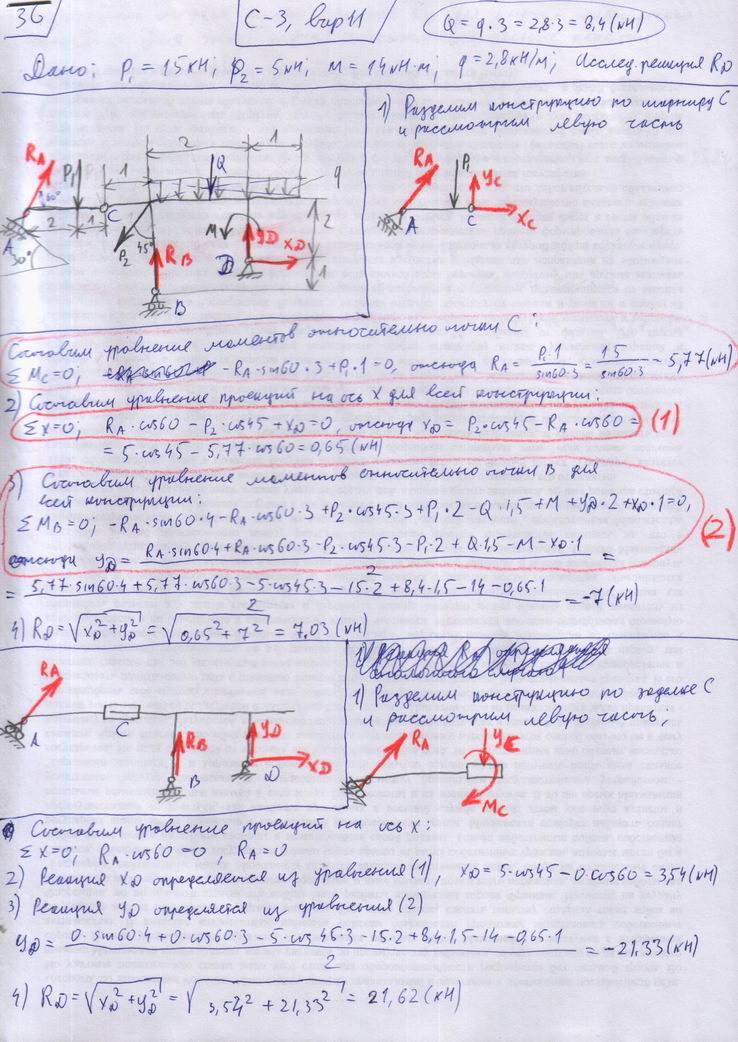 36
С-3, вар 11
Q = q·3 = 2,8·3 = 8,4 (кН)
Дано: P₁ = 15 кН; P₂ = 5 кН; M = 14 кН·м; q = 2,8 кН/м; Исслед. реакция R_D
1) Разделим конструкцию по шарниру С
и рассмотрим левую часть
R_A
60°
P₁
2
1
Q
1
q
A
2
1
C
P₂
45°
R_B
M
Y_D
X_D
D
2
1
30°
B
R_A
P₁
Y_C
A
C
X_C
Составим уравнение моментов относительно точки С:
ΣM_C=0; -R_A·sin60·3+P₁·1=0, отсюда R_A = P₁·1/sin60·3 = 15/sin60·3 = 5,77(кН)
2) Составим уравнение проекций на ось X для всей конструкции:
ΣX=0; R_A·cos60 - P₂·cos45 + X_D = 0, отсюда X_D = P₂·cos45 - R_A·cos60 = (1)
= 5·cos45 - 5,77·cos60 = 0,65 (кН)
3) Составим уравнение моментов относительно точки В для
всей конструкции:
ΣM_B=0; -R_A·sin60·4-R_A·cos60·3+P₂·cos45·3+P₁·2-Q·1,5+M+Y_D·2+X_D·1=0,
(2)
отсюда Y_D = R_A·sin60·4+R_A·cos60·3-P₂·cos45·3-P₁·2+Q·1,5-M-X_D·1 / 2 =
= 5,77·sin60·4+5,77·cos60·3-5·cos45·3-15·2+8,4·1,5-14-0,65·1 / 2 = -7 (кН)
4) R_D = √X_D²+Y_D² = √0,65²+7² = 7,03 (кН)
R_A
A
C
R_B
B
Y_D
X_D
D
1) Разделим конструкцию по заделке С
и рассмотрим левую часть;
R_A
A
Y_C
M_C
Составим уравнение проекций на ось X:
ΣX=0; R_A·cos60=0, R_A=0
2) Реакция X_D определяется из уравнения (1), X_D = 5·cos45 - 0·cos60 = 3,54 (кН)
3) Реакция Y_D определяется из уравнения (2)
Y_D = 0·sin60·4+0·cos60·3-5·cos45·3-15·2+8,4·1,5-14-0,65·1 / 2 = -21,33 (кН)
4) R_D = √X_D²+Y_D² = √3,54²+21,33² = 21,62 (кН)